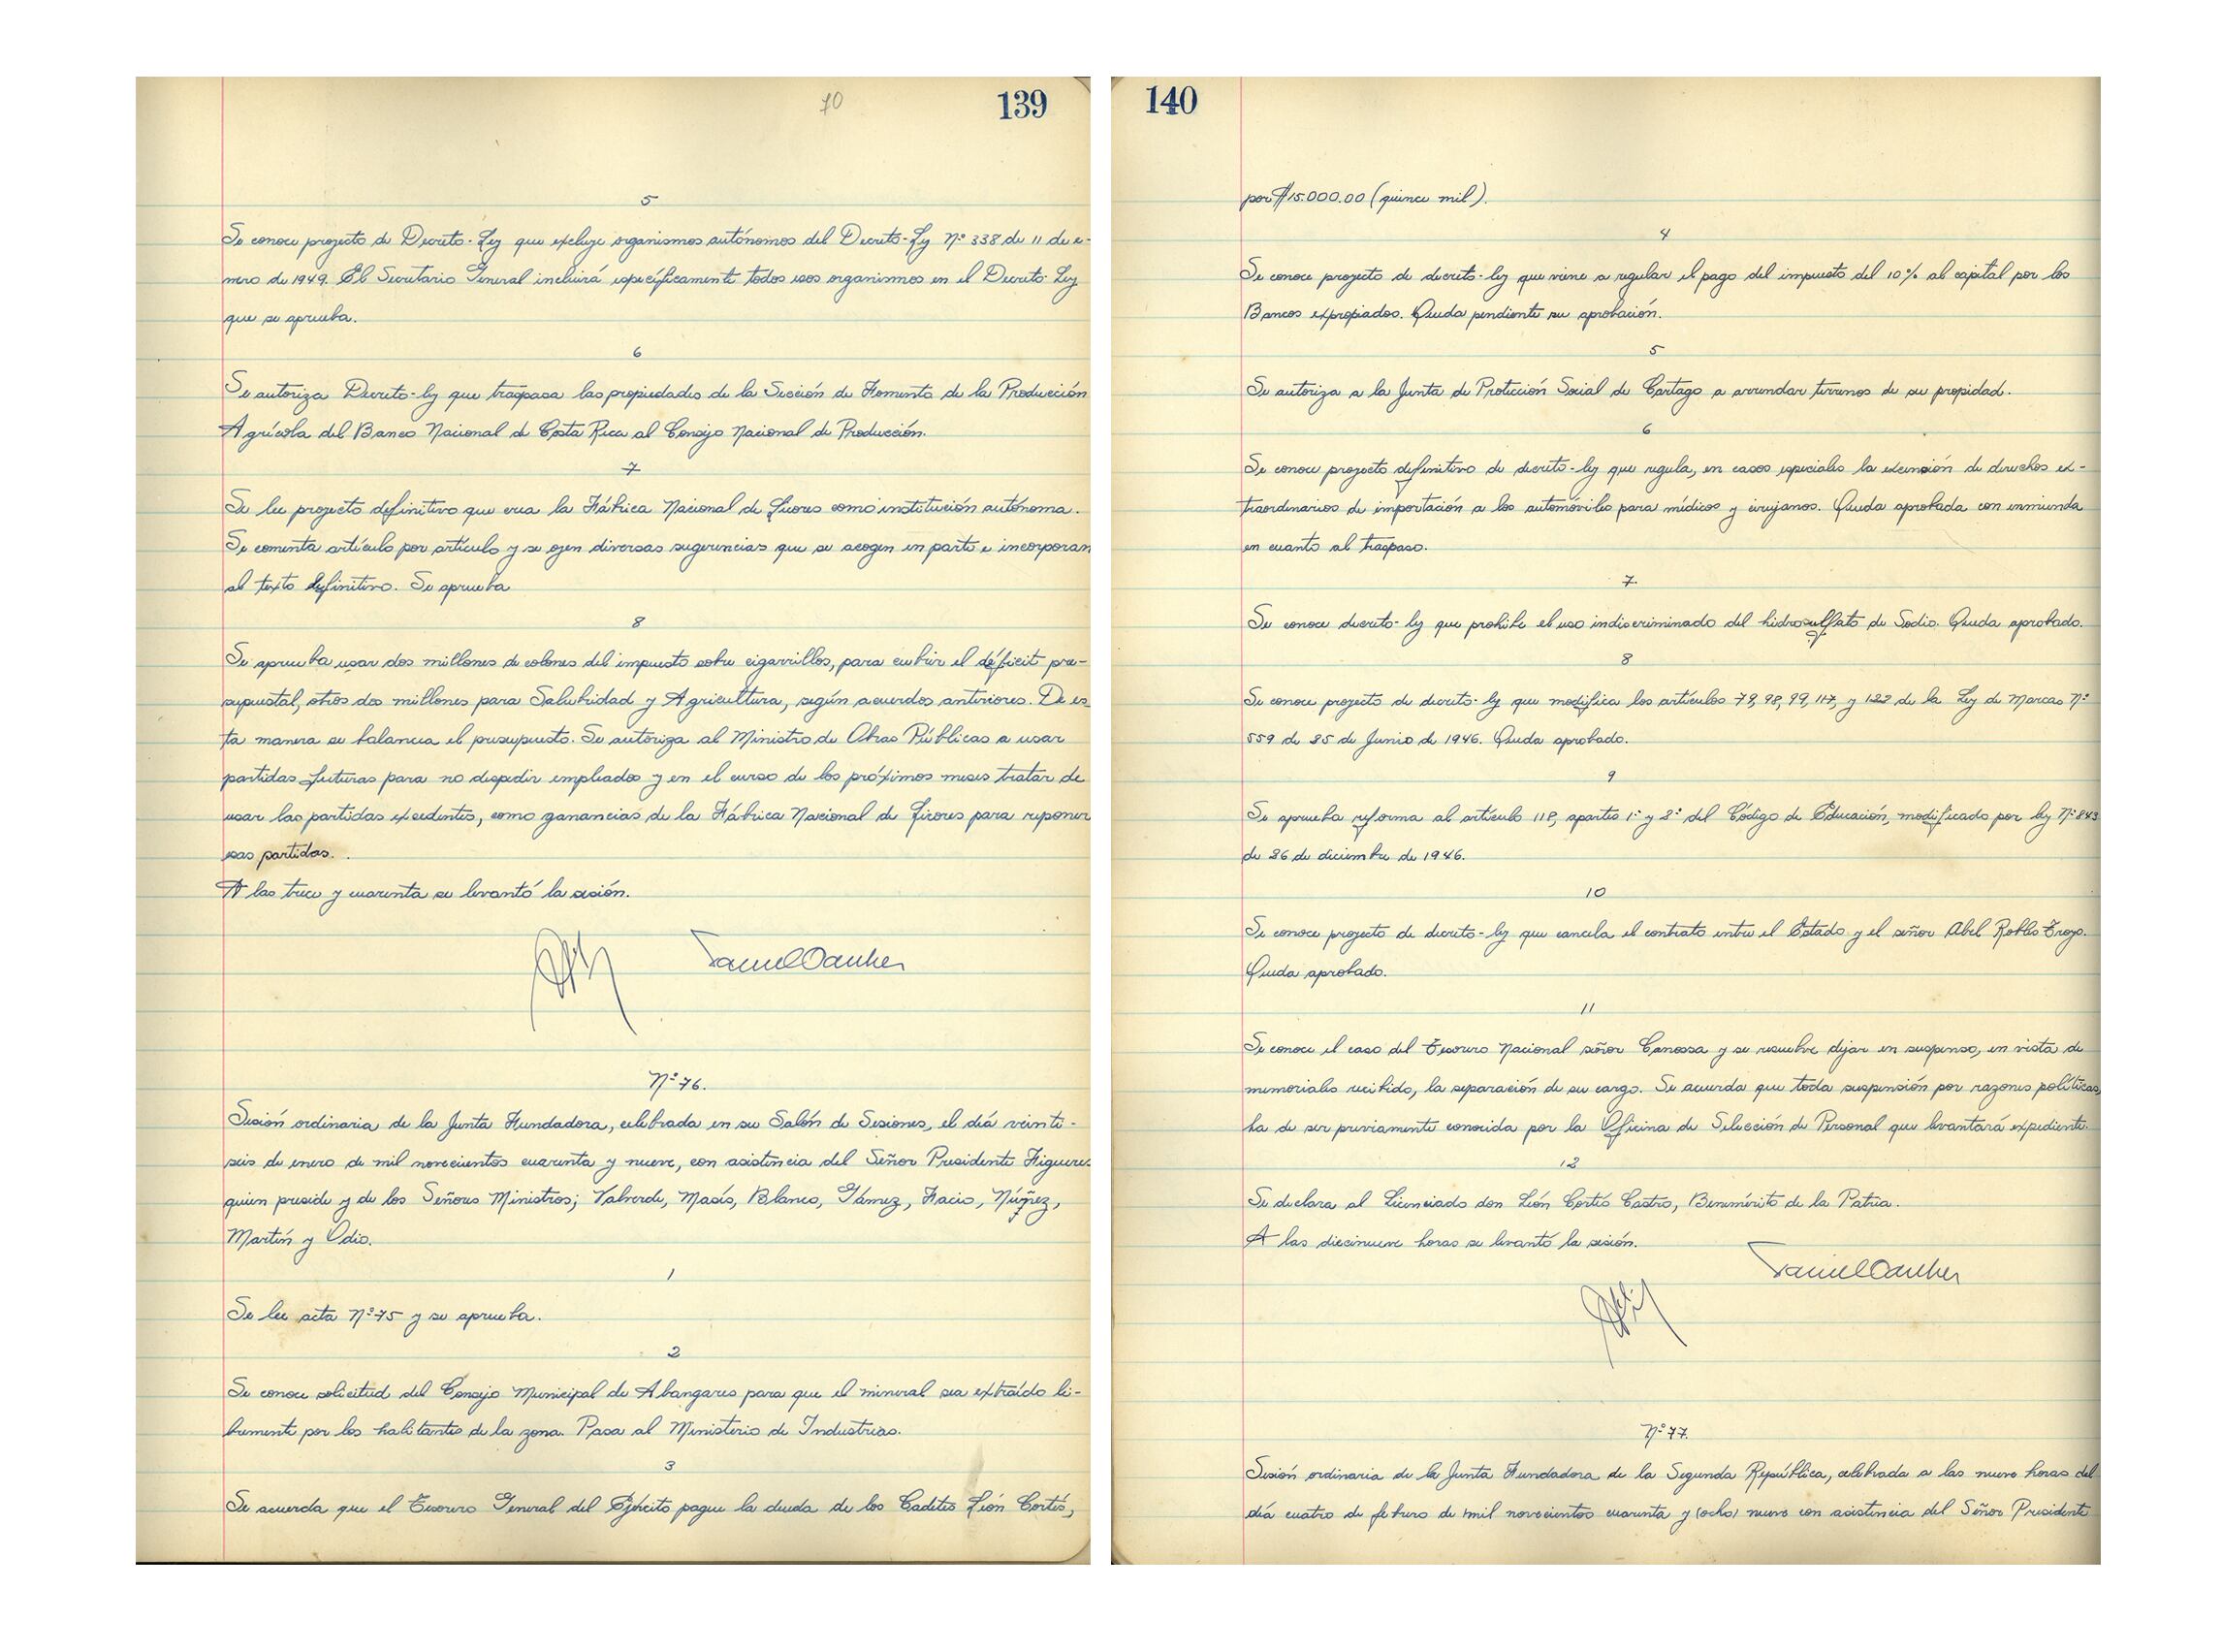 70
139
5
Se conoce proyecto de Decreto-Ley que excluye organismos autónomos del Decreto-Ley Nº 338 de 11 de e-
nero de 1949. El Secretario General incluirá específicamente todos esos organismos en el Decreto-Ley
que se aprueba.
6
Se autoriza Decreto-ley que traspasa las propiedades de la Sección de Fomento de la Producción
Agrícola del Banco Nacional de Costa Rica al Consejo Nacional de Producción.
7
Se lee proyecto definitivo que crea la Fábrica Nacional de Licores como institución autónoma.
Se comenta artículo por artículo y se oyen diversas sugerencias que se acogen en parte e incorporan
al texto definitivo. Se aprueba
8
Se aprueba usar dos millones de colones del impuesto sobre cigarrillos, para cubrir el déficit pre-
supuestal, otros dos millones para Salubridad y Agricultura, según acuerdos anteriores. De es-
ta manera se balancea el presupuesto. Se autoriza al Ministro de Obras Públicas a usar
partidas futuras para no despedir empleados y en el curso de los próximos meses tratar de
usar las partidas excedentes, como ganancias de la Fábrica Nacional de Licores para reponer
esas partidas.
A las trece y cuarenta se levantó la sesión.
Nº 76.
Sesión ordinaria de la Junta Fundadora, celebrada en su Salón de Sesiones, el día veinti-
seis de enero de mil novecientos cuarenta y nueve, con asistencia del Señor Presidente Figueres
quien preside y de los Señores Ministros; Valverde, Masís, Blanco, Gámez, Facio, Núñez,
Martín y Odio.
1
Se lee acta Nº 75 y se aprueba.
2
Se conoce solicitud del Consejo Municipal de Abangares para que el mineral sea extraído li-
bremente por los habitantes de la zona. Pasa al Ministerio de Industrias.
3
Se acuerda que el Tesorero General del Ejército pague la deuda de los Cadetes León Cortés,
140
por ₡15.000.00 (quince mil).
4
Se conoce proyecto de decreto-ley que viene a regular el pago del impuesto del 10% al capital por los
Bancos expropiados. Queda pendiente su aprobación.
5
Se autoriza a la Junta de Protección Social de Cartago a arrendar terrenos de su propidad.
6
Se conoce proyecto definitivo de decreto-ley que regula, en casos especiales la exención de derechos ex-
traordinarios de importación a los automóviles para médicos y cirujanos. Queda aprobada con enmienda
en cuanto al traspaso.
7.
Se conoce decreto-ley que prohibe el uso indiscriminado del hidrosulfato de Sodio. Queda aprobado.
8
Se conoce proyecto de decreto-ley que modifica los artículos 79, 98, 99, 117, y 122 de la Ley de Marcas Nº
559 de 25 de Junio de 1946. Queda aprobado.
9
Se aprueba reforma al artículo 118, apartes 1º y 2º del Código de Educación, modificado por ley Nº 843
de 26 de diciembre de 1946.
10
Se conoce proyecto de decreto-ley que cancela el contrato entre el Estado y el señor Abel Robles Trejo.
Queda aprobado.
11
Se conoce el caso del Tesorero Nacional señor Canossa y se resuelve dejar en suspenso, en vista de
memoriales recibido, la separación de su cargo. Se acuerda que toda suspensión por razones políticas,
ha de ser previamente conocida por la Oficina de Selección de Personal que levantará expediente.
12
Se declara al Licenciado don León Cortés Castro, Benemérito de la Patria.
A las diecinueve horas se levantó la sesión.
Nº 77.
Sesión ordinaria de la Junta Fundadora de la Segunda República, celebrada a las nueve horas del
día cuatro de febrero de mil novecientos cuarenta y (ocho) nueve con asistencia del Señor Presidente